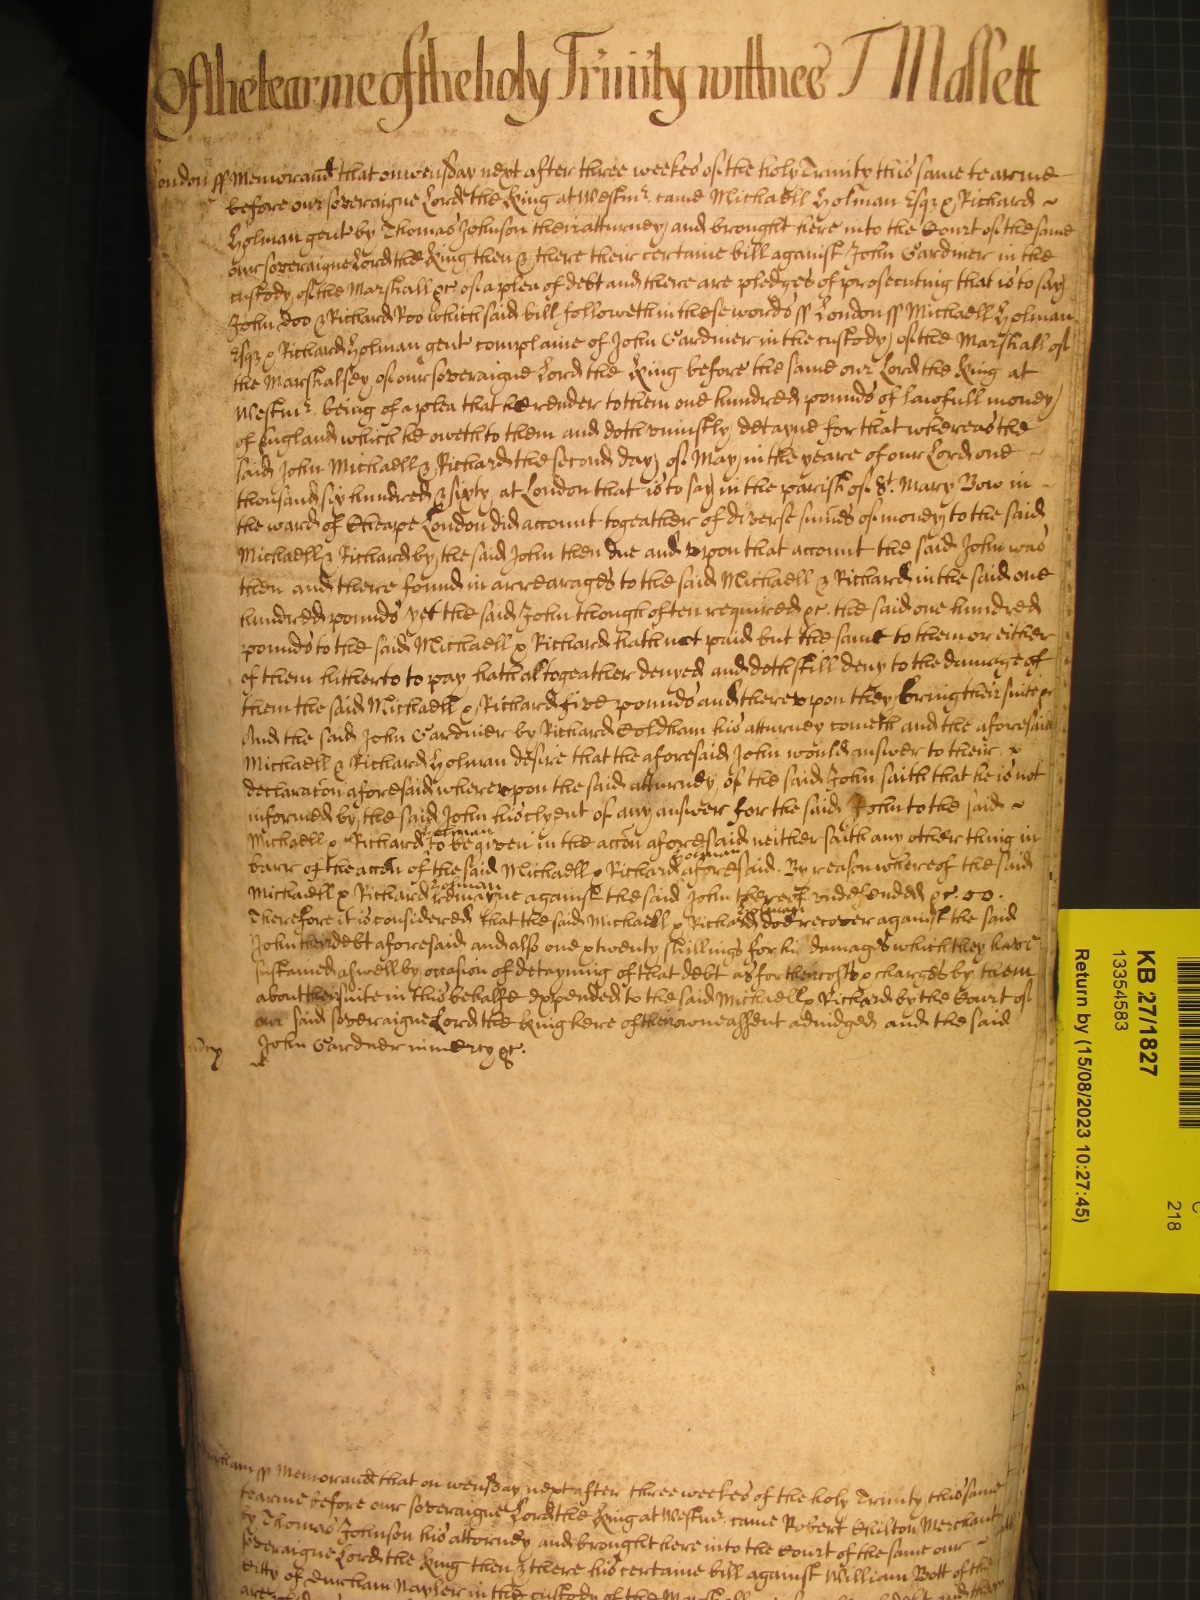 Of the tearme of the holy Trinity wittnes T Mallett
London ss Memorand that on wensday next after three weekes of the holy Trinity this same tearme
before our soveraigne Lord the King at Westmr. came Michaell Holman Esqr & Richard
Holman gent by Thomas Johnson their atturney and brought here into the Court of the same
our soveraigne Lord the King then & there their certaine bill against John Gardiner in the
custody of the Marshall &c of a plea of debt and there are pledges of prosecuting that is to say
John Doo & Richard Roo which said bill followeth in these words ss London ss Michaell Holman
Esqr & Richard Holman gent complaine of John Gardiner in the custody of the Marshall of
the Marshalsey of our soveraigne Lord the King before the same our Lord the King at
Westmr. being of a plea that he render to them one hundred pounds of lawfull money
of England which he oweth to them and doth uniustly detayne for that whereas the
said John Michaell & Richard the second day of May in the yeare of our Lord one
thousand six hundred & sixty at London that is to say in the parish of St. Mary Bow in
the ward of Cheape London did account togeather of diverse sumes of money to the said
Michaell & Richard by the said John then due and upon that account the said John was
then and there found in arrearages to the said Michaell & Richard in the said one
hundred pounds yet the said John though often required &c. the said one hundred
pounds to the said Michaell & Richard hath not paid but the same to them or either
of them hitherto to pay hath altogeather denyed and doth still deny to the damage of
them the said Michaell & Richard five pounds and thereupon they bring their suite &c
And the said John Gardiner by Richard Coldham his atturney cometh and the aforesaid
Michaell & Richard Holman desire that the aforesaid John would answer to their
declaracon aforesaid whereupon the said atturney of the said John saith that he is not
informed by the said John his clyent of any answer for the said John to the said
Michaell & Richard Holman to be given in the accon aforesaid neither saith any other thing in
barr of the accon of the said Michaell & Richard Holman aforesaid. By reason whereof the said
Michaell & Richard Holman remayne against the said John thereof undefended &c. oo.
Therefore it is considered that the said Michaell & Richard Holman doe recover against the said
John their debt aforesaid and also one & twenty shillings for his damages which they have
sustained aswell by occasion of detayning of that debt as for their costs & charges by them
about their suite in this behalfe expended to the said Michaell & Richard by the Court of
our said soveraigne Lord the King here of their owne assent adiudged and the said
John Gardner in mercy &c.
ss Memorand that on wensday next after three weekes of the holy Trinity this same
tearme before our soveraigne Lord the King at Westmr. came Robert Hilton Merchant
by Thomas Johnson his attorney and brought here into the Court of the same our
soveraigne Lord the King then & there his certaine bill against William Bott of the
Citty of Durham Nayler in the custody of the
KB 27/1827
13354583
Return by (15/08/2023 10:27:45)
218